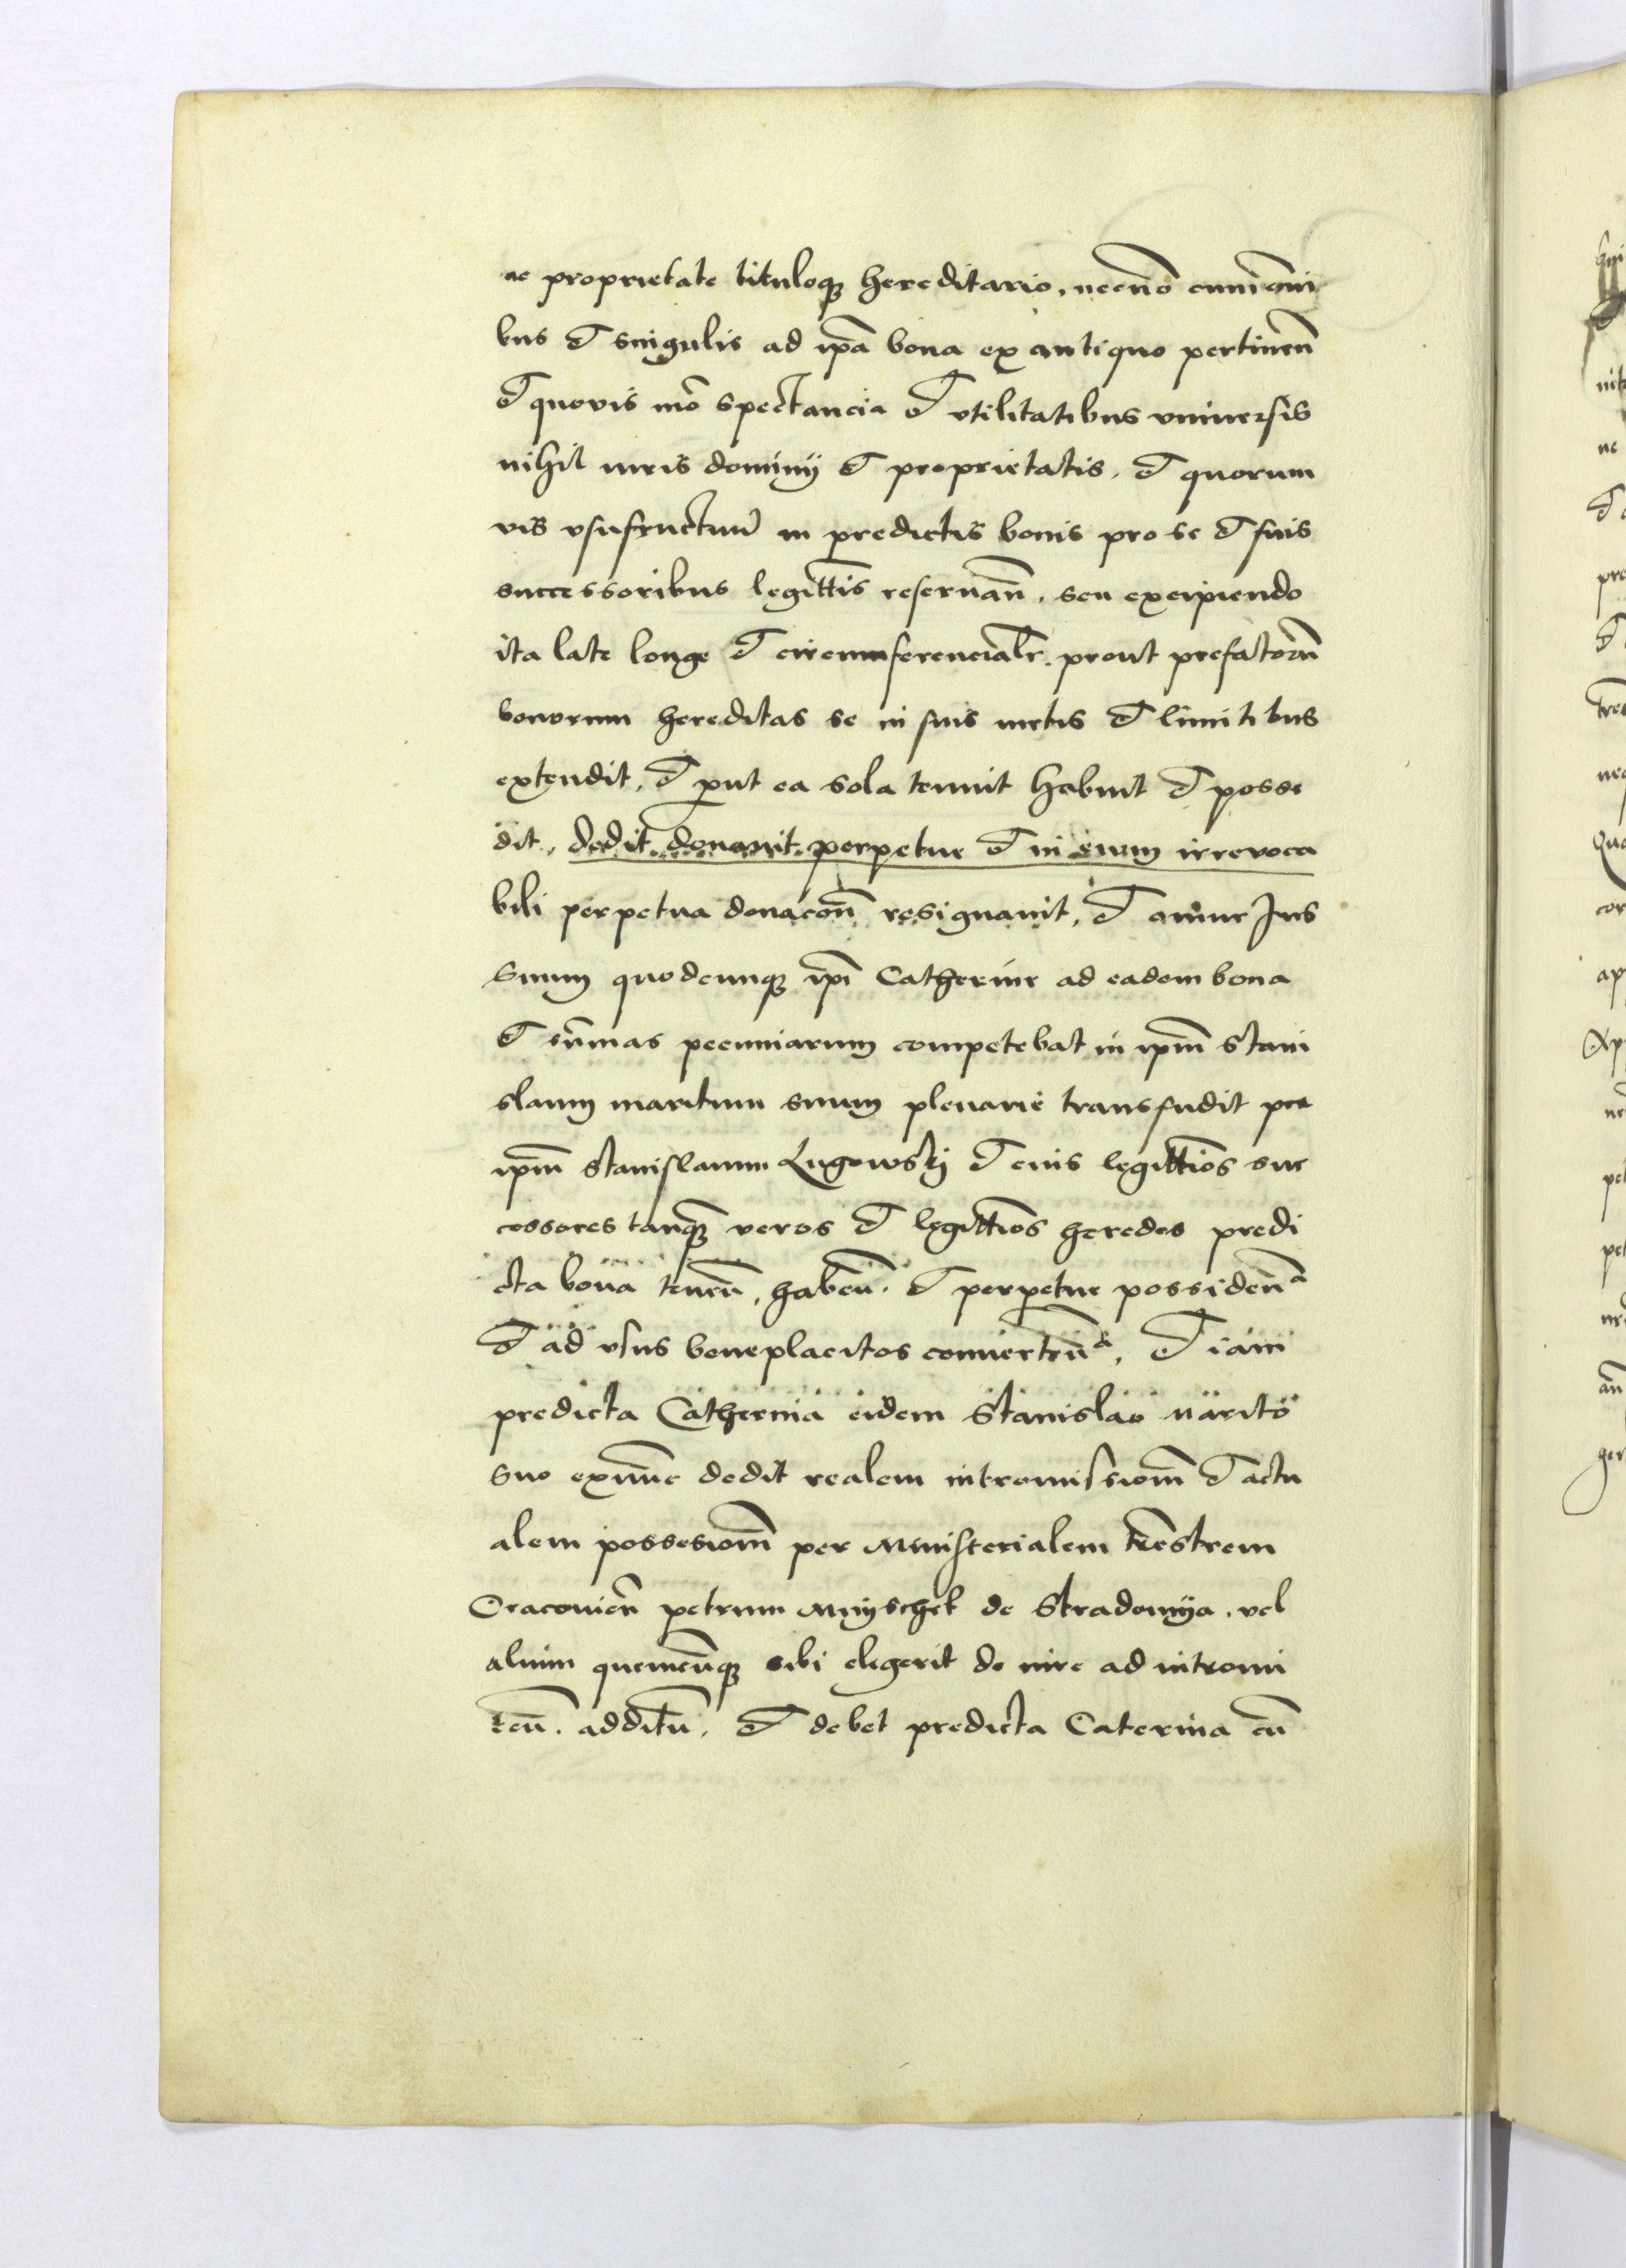 ac proprietate tituloq₃ hereditario, necnō cum om̄i
bus et singulis ad ip̄a bona ex antiquo pertineñ
et quovis mō spectancia et vtilitatibus vniuersis
nihil iuris dominij et proprietatis, et quorum
vis vsufructuū in predictis bonis pro se et suis
successoribus legittīs reseruañ, seu excipiendo
ita late longe et circumferencialr̄. prout prefatorū
bonorum hereditas se in suis metis et limitibus
extendit, et put ea sola tenuit habuit et posse
dit, dedit donauit perpetue et in euum irrevoca
bili perpetua donacoñ resignauit, et omne Jus
suum quodcunq₃ ip̄i Catherine ad eadem bona
et sūmas pecuniarum competebat in ip̄m Stani
slaum maritum suum plenarie transfudit per
ip̄m Stanislaum Lugowskj et eius legittīos suc
cessores tanq̄₃ veros et legittīos heredes predi
cta bona teneñ, habeñ. et perpetue possideñᵃ
et ad vsus beneplacitos conuerteñᵃ, et iam
predicta Catherina eidem Stanislao marito
suo extunc dedit realem intromissiom̄ et actu
alem possesiom̄ per Ministerialem trēstrem
Cracovień petrum Mnyschek de Stradomya, vel
alium quemcūq₃ sibi elegerit de iure ad intromi
teñ. additū. et debet predicta Caterina cū